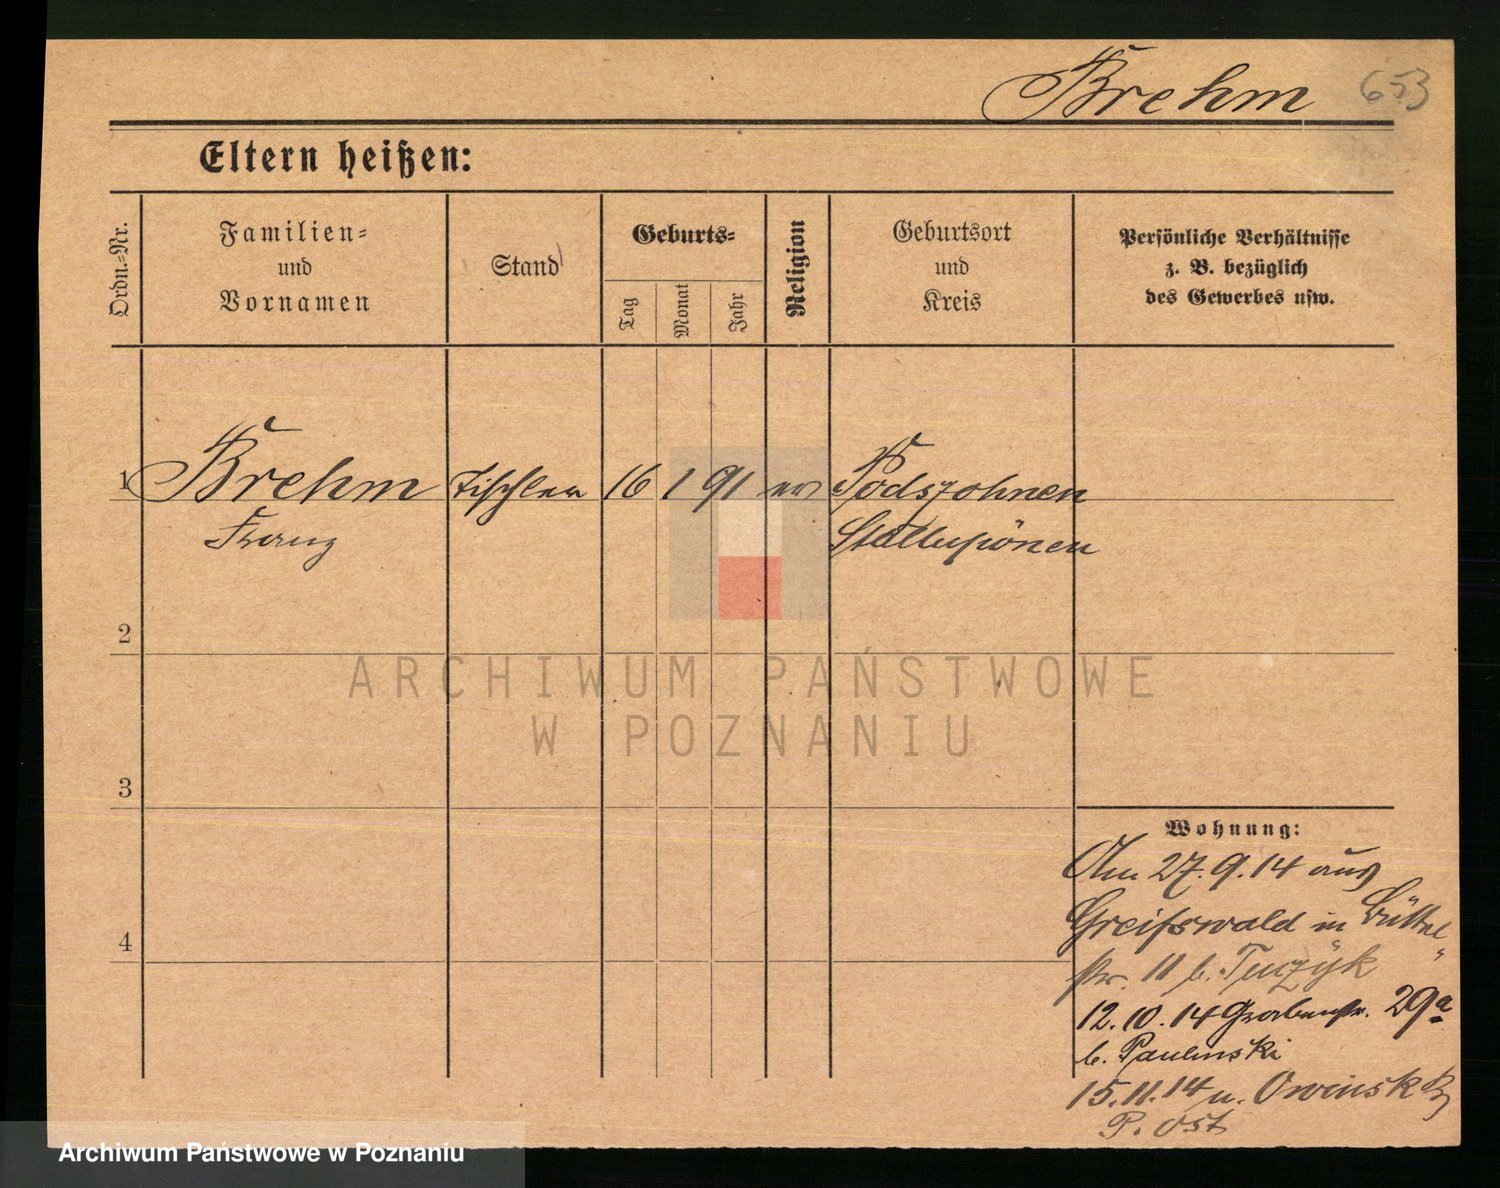 Brehm 653
Eltern heißen:
Ordn.-Nr.
Familien-
und
Vornamen
Stand
Geburts-
Tag
Monat
Jahr
Religion
Geburtsort
und
Kreis
Persönliche Verhältnisse
z. B. bezüglich
des Gewerbes usw.
1 Brehm Tischler 16 1 91 ev Podszohnen
Franz Stallupönen
2
3
4
Wohnung:
Am 27.9.14 aus
Greifswald in Büttel
str. 11 b. Tuczyk
12.10.14 Grabenstr. 29a
b. Paulinski
15.11.14 n. Owinsk
P. Ost
ARCHIWUM PAŃSTWOWE
W POZNANIU
Archiwum Państwowe w Poznaniu